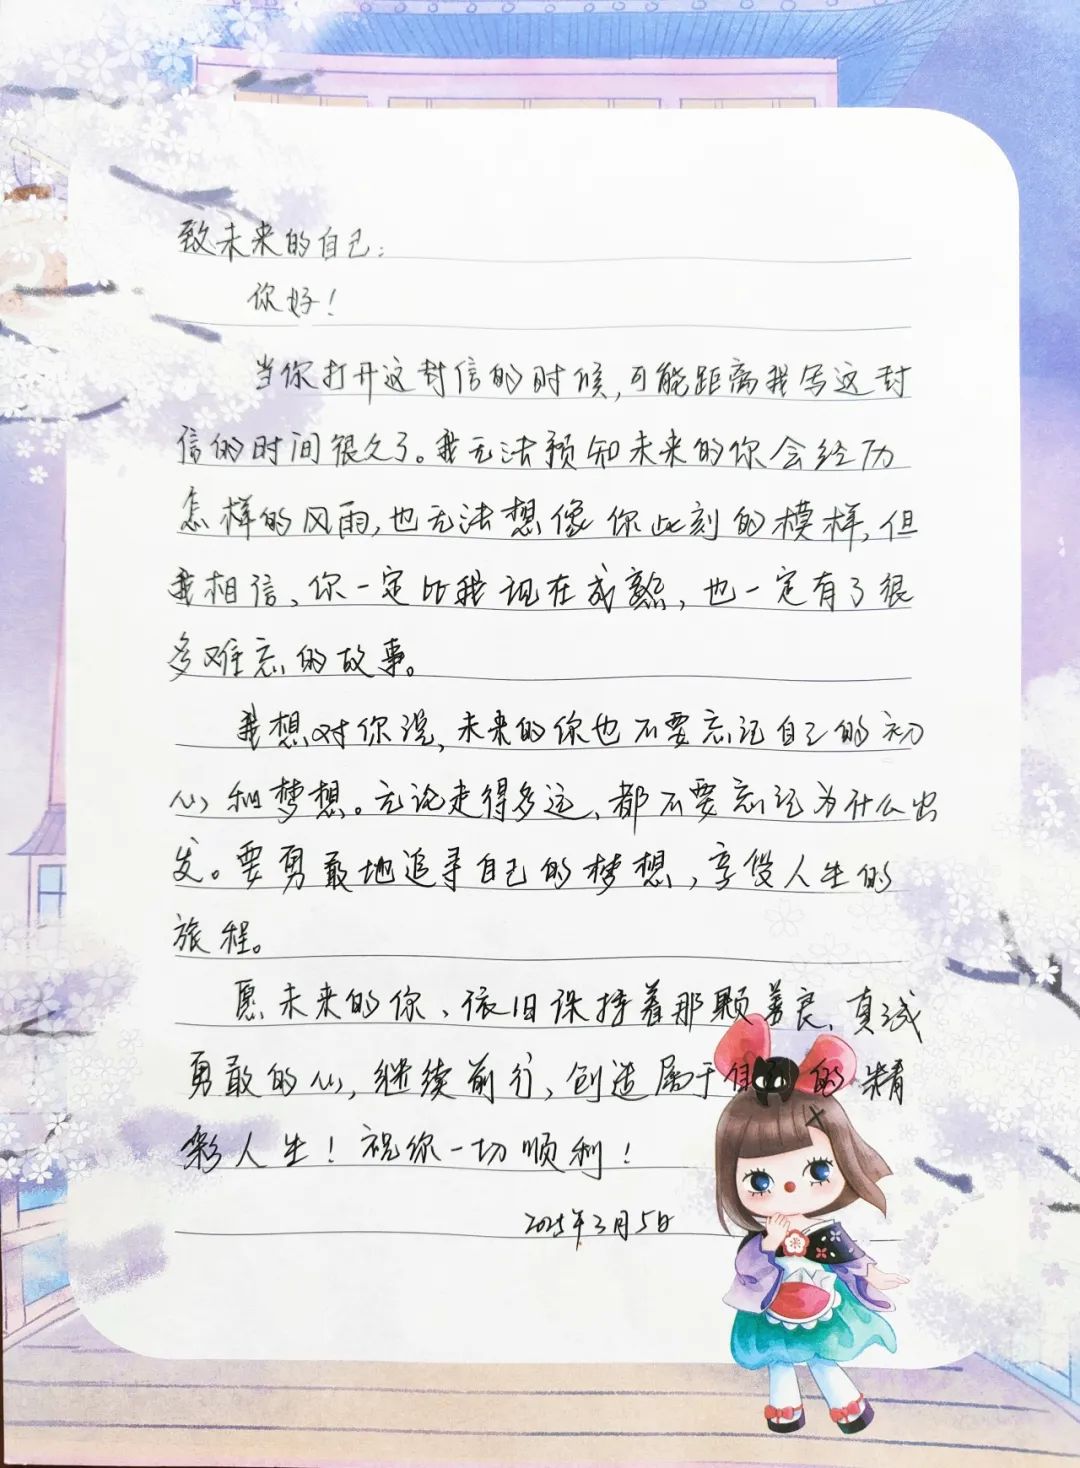 致未来的自己:
你好！
当你打开这封信的时候,可能距离我写这封
信的时间很久了。我无法预知未来的你会经历
怎样的风雨,也无法想像你此刻的模样,但
我相信、你一定比我现在成熟,也一定有了很
多难忘的故事。
我想对你说,未来的你也不要忘记自己的初
心和梦想。无论走得多远、都不要忘记为什么出
发。要勇敢地追寻自己的梦想,享受人生的
旅程。
愿未来的你、依旧保持着那颗善良、真诚
勇敢的心,继续前行,创造属于的精
彩人生！祝你一切顺利！
2025年3月5日